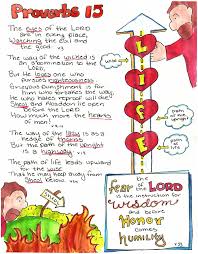 Proverbs 15
The eyes of the LORD
are in every place,
Watching the evil and
the good
The way of the wicked is
an abomination to the
LORD,
But He loves one who
pursues righteousness.
Grievous punishment is for
him who forsakes the way,
He who hates reproof will die!
Sheol and Abaddon lie open
before the LORD
How much more the hearts
of men!
The way of the lazy is as a
hedge of thorns
But the path of the upright
is a highway.
The path of life leads upward
for the wise
That he may keep away from
Sheol below.
LIFE
the
Fear of the LORD
is the instruction for
WISDOM
and before
HONOR
comes
HUMILITY
v 33